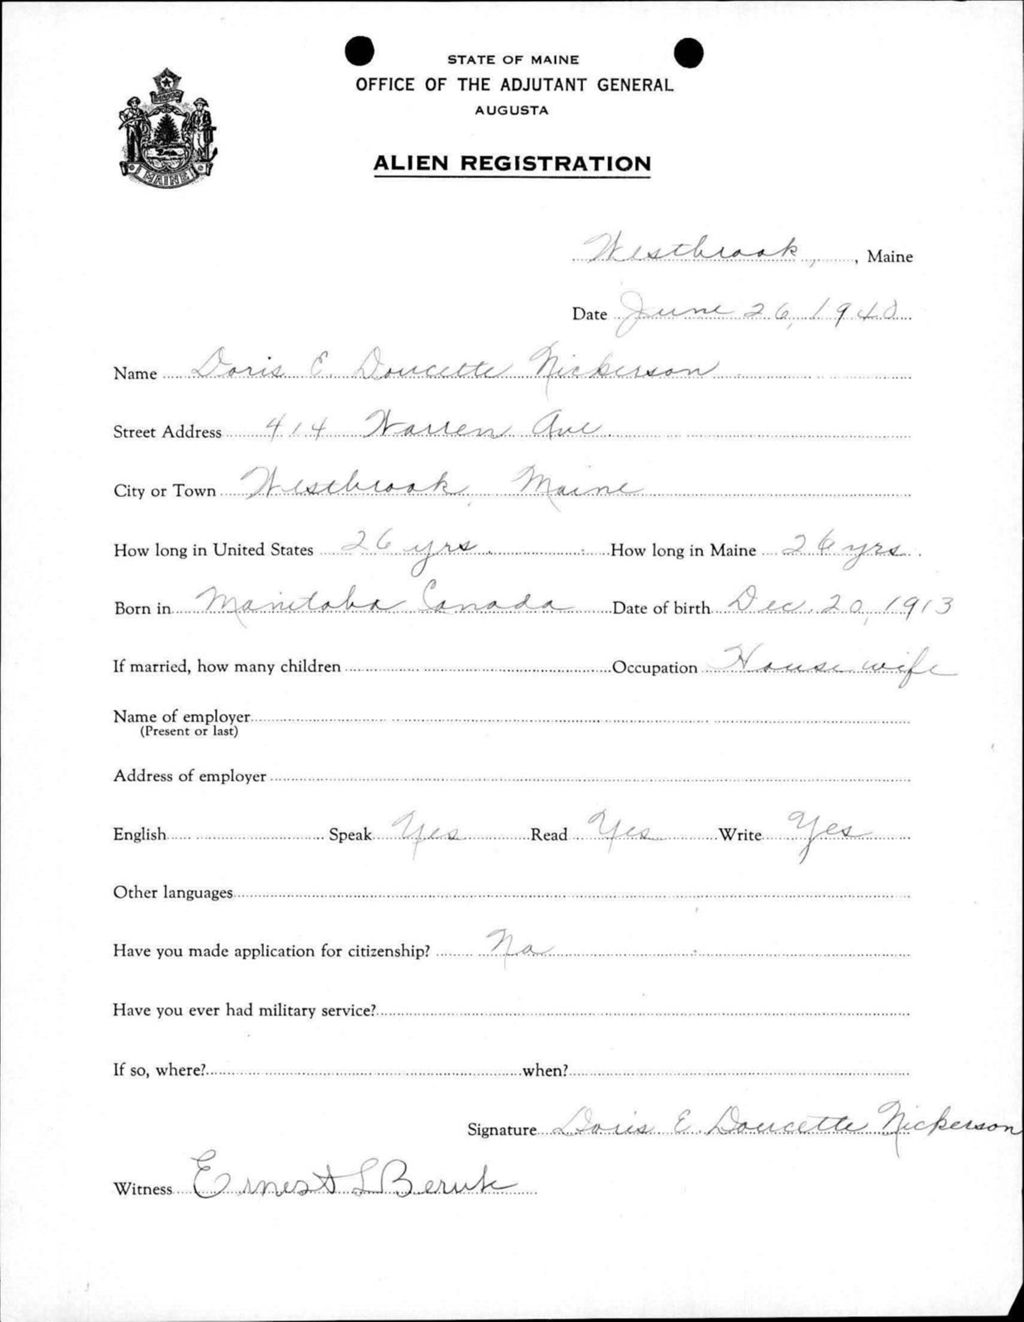 STATE OF MAINE
OFFICE OF THE ADJUTANT GENERAL
AUGUSTA
ALIEN REGISTRATION
MAINE
Westbrook, , Maine
Date June 26, 1940
Name Doris E. Doucette Nickerson
Street Address 414 Warren Ave
City or Town Westbrook, Maine
How long in United States 26 yrs. How long in Maine 26 yrs.
Born in Manitoba Canada Date of birth Dec. 20, 1913
If married, how many children Occupation House wife
Name of employer
(Present or last)
Address of employer
English Speak Yes Read Yes Write Yes
Other languages
Have you made application for citizenship? No
Have you ever had military service?
If so, where? when?
Signature Doris E. Doucette Nickerson
Witness Ernest L